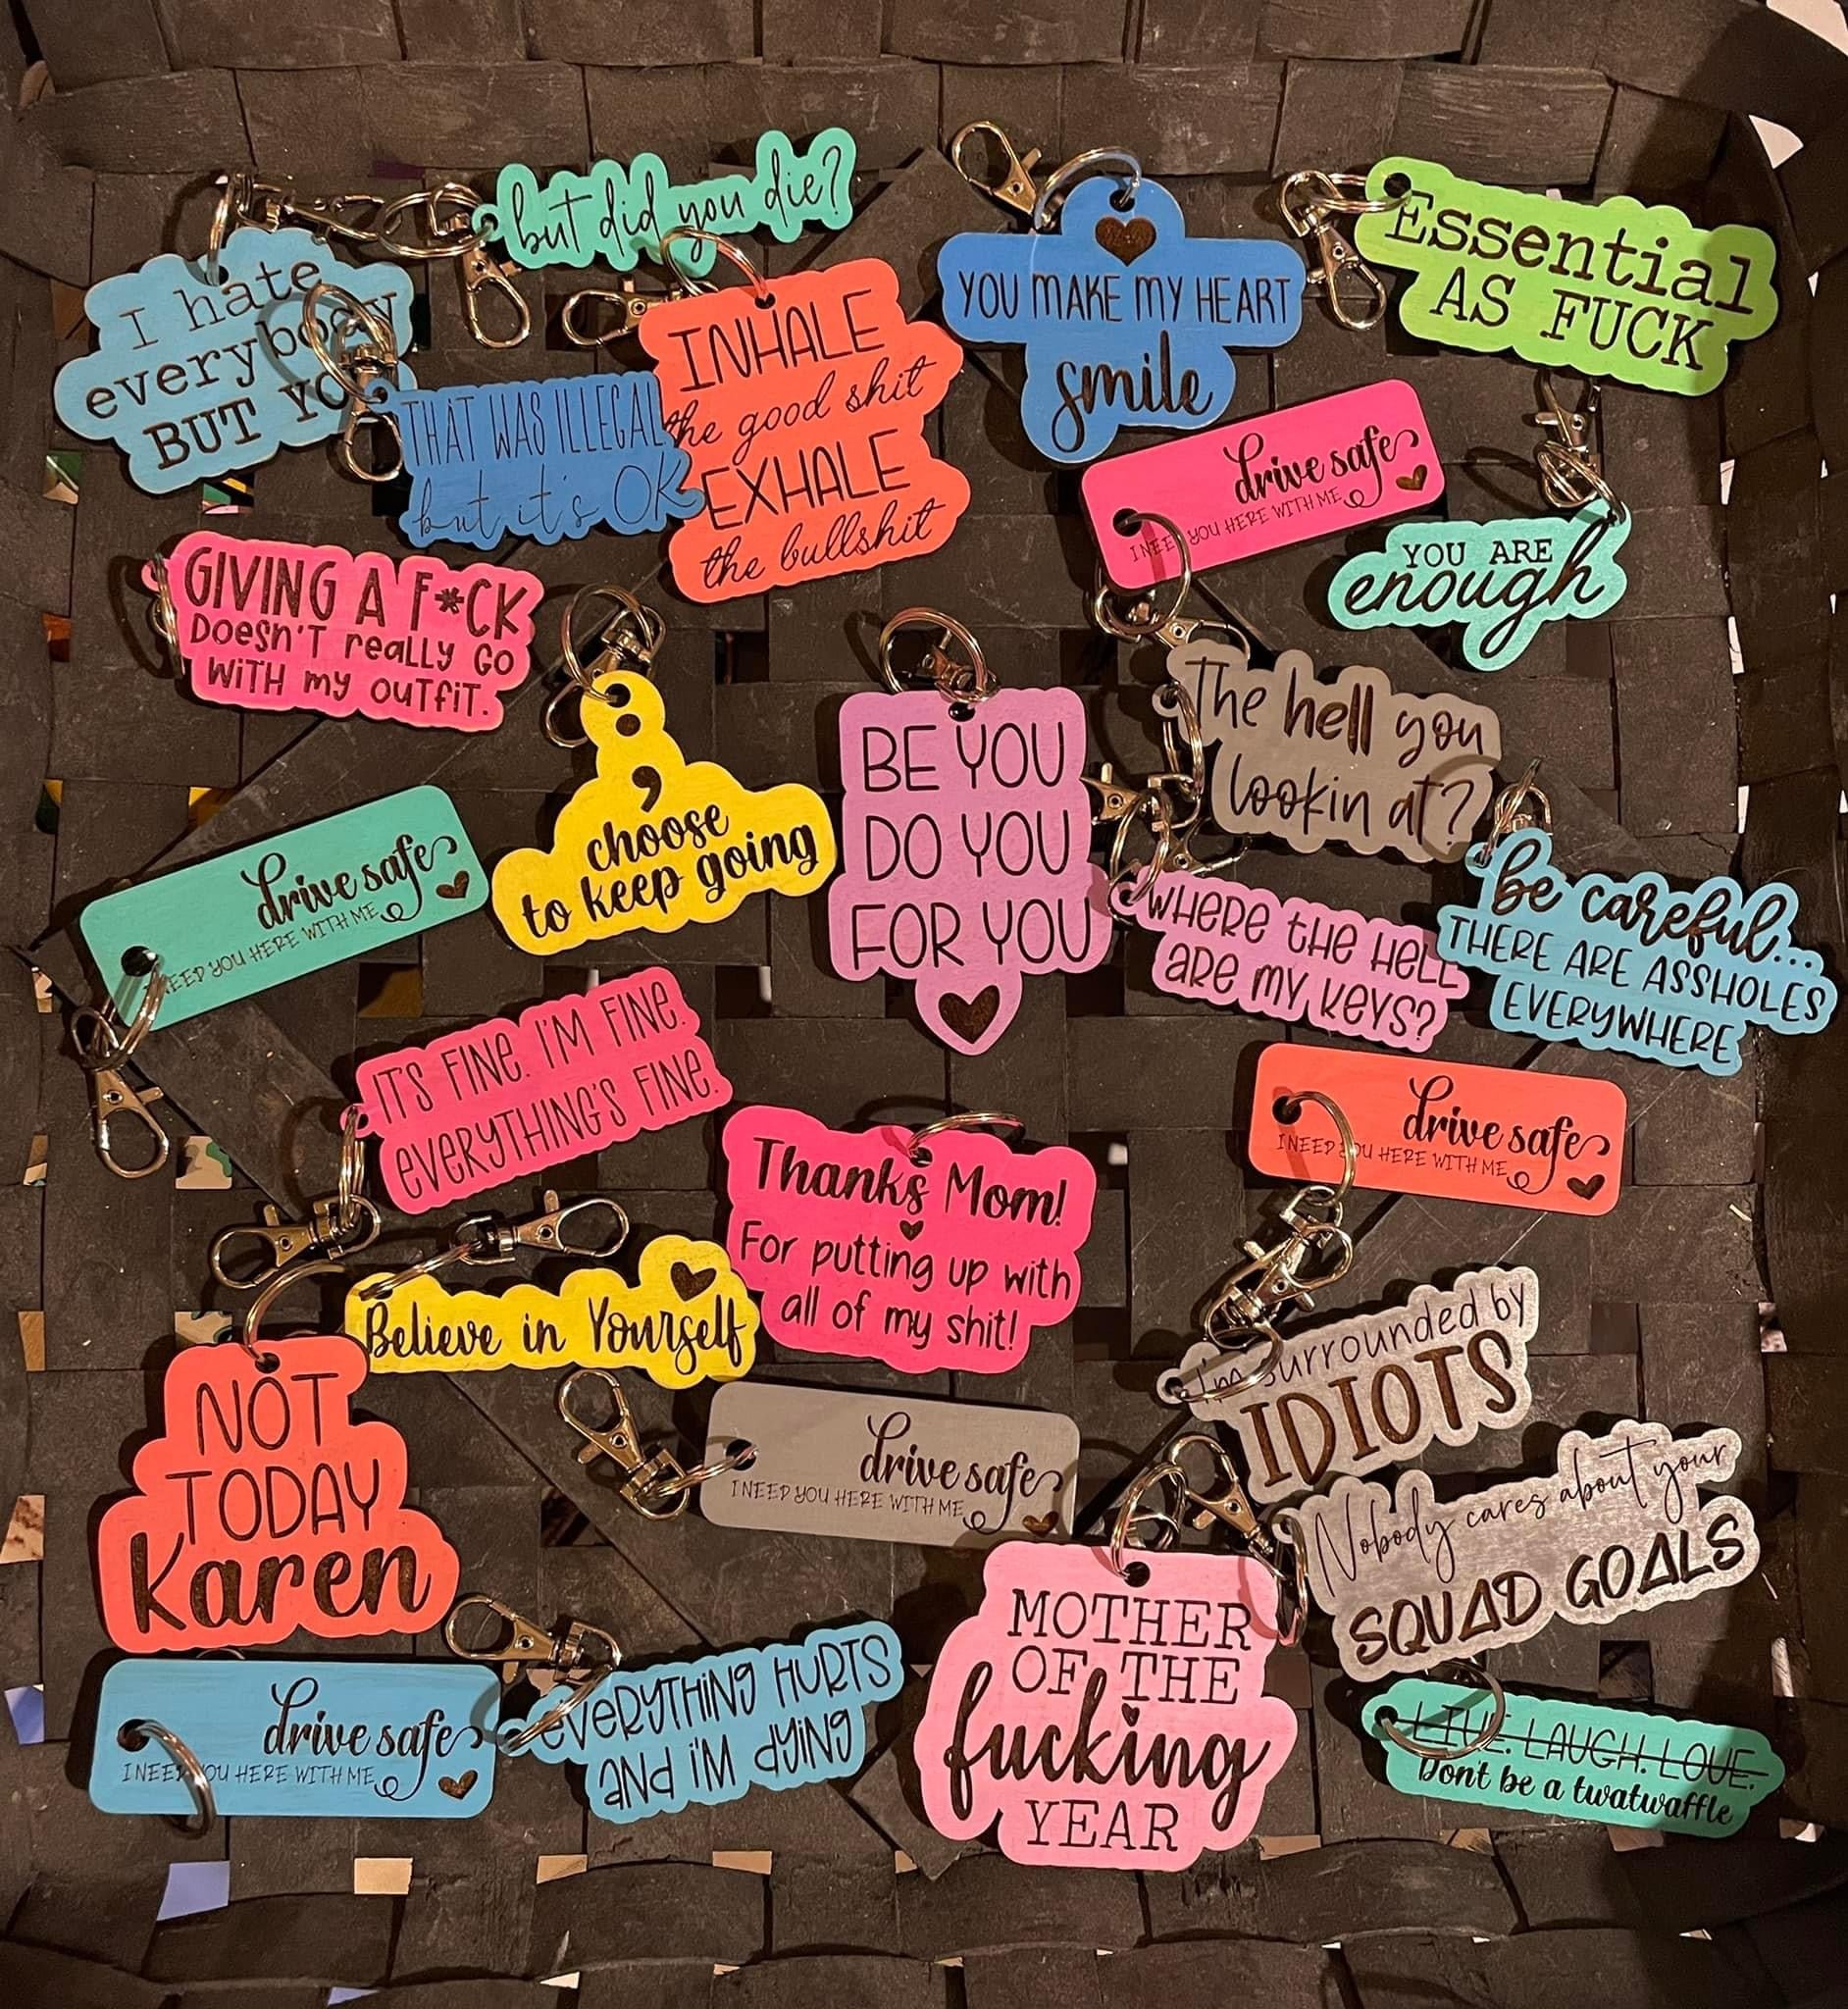 but did you die?
I hate
everybody
BUT YO
THAT WAS ILLEGAL
but it's OK
INHALE
the good shit
EXHALE
the bullshit
YOU MAKE MY HEART
smile
Essential
AS FUCK
drive safe
I NEED YOU HERE WITH ME
YOU ARE
enough
GIVING A F*CK
Doesn't really go
with my outfit.
;
choose
to keep going
BE YOU
DO YOU
FOR YOU
The hell you
lookin at?
drive safe
I NEED YOU HERE WITH ME
WHERE tHE HELL
aRE MY KEYS?
be careful...
THERE ARE ASSHOLES
EVERYWHERE
IT'S FINE. I'M FINE.
EVERYTHING'S FINE.
Thanks Mom!
For putting up with
all of my shit!
drive safe
I NEED YOU HERE WITH ME
Believe in Yourself
NOT
TODAY
Karen
drive safe
I NEED YOU HERE WITH ME
I'm surrounded by
IDIOTS
Nobody cares about your
SQUAD GOALS
MOTHER
OF THE
fucking
YEAR
drive safe
I NEED YOU HERE WITH ME
EVERYTHING HURTS
AND I'M DYING
LIVE. LAUGH. LOVE.
Don't be a twatwaffle